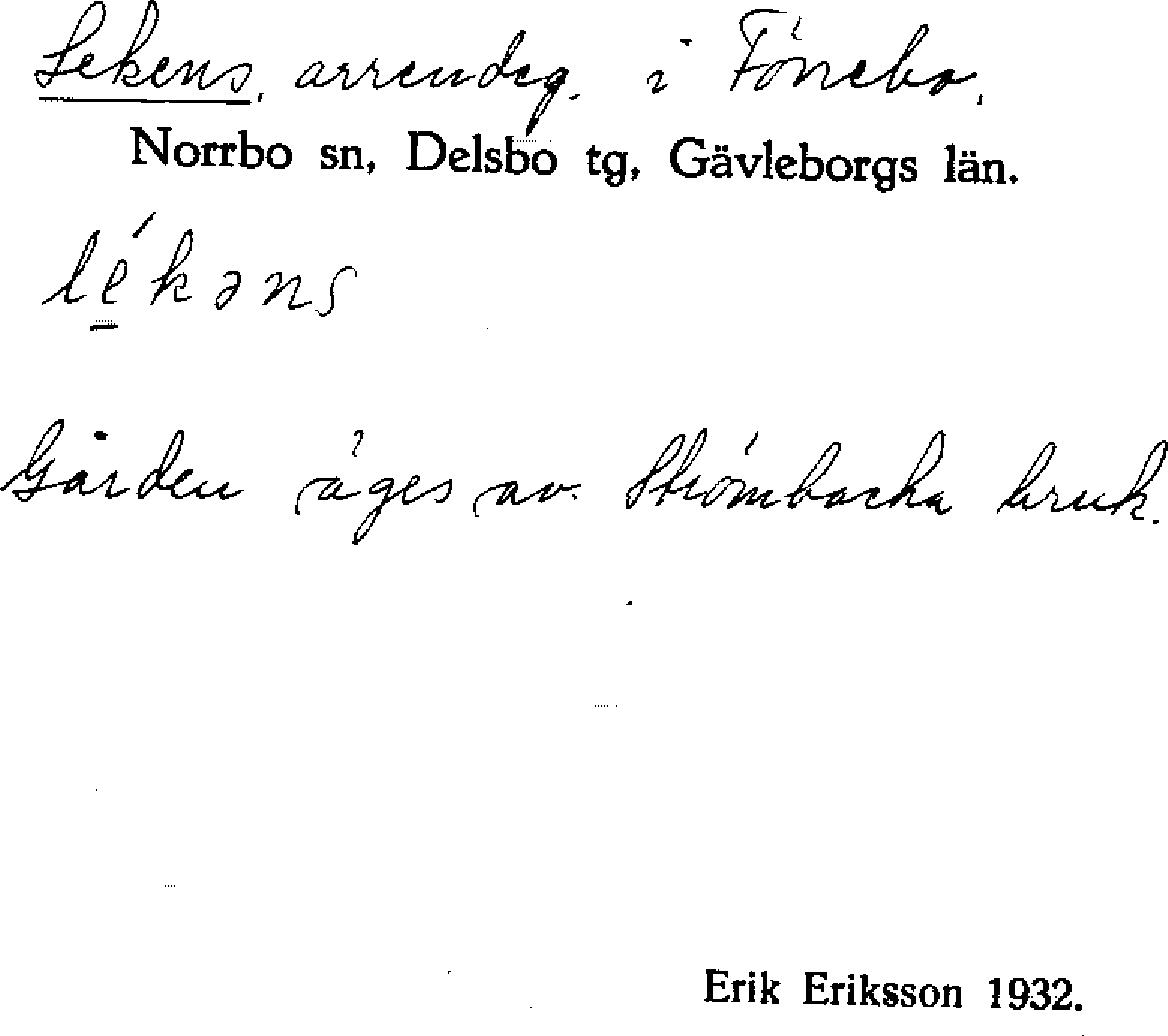 Lekens, arrendeg. i Fönebo,
Norrbo sn, Delsbo tg, Gävleborgs län.
lékəns
Gården äges av Strömbacka bruk.
Erik Eriksson 1932.